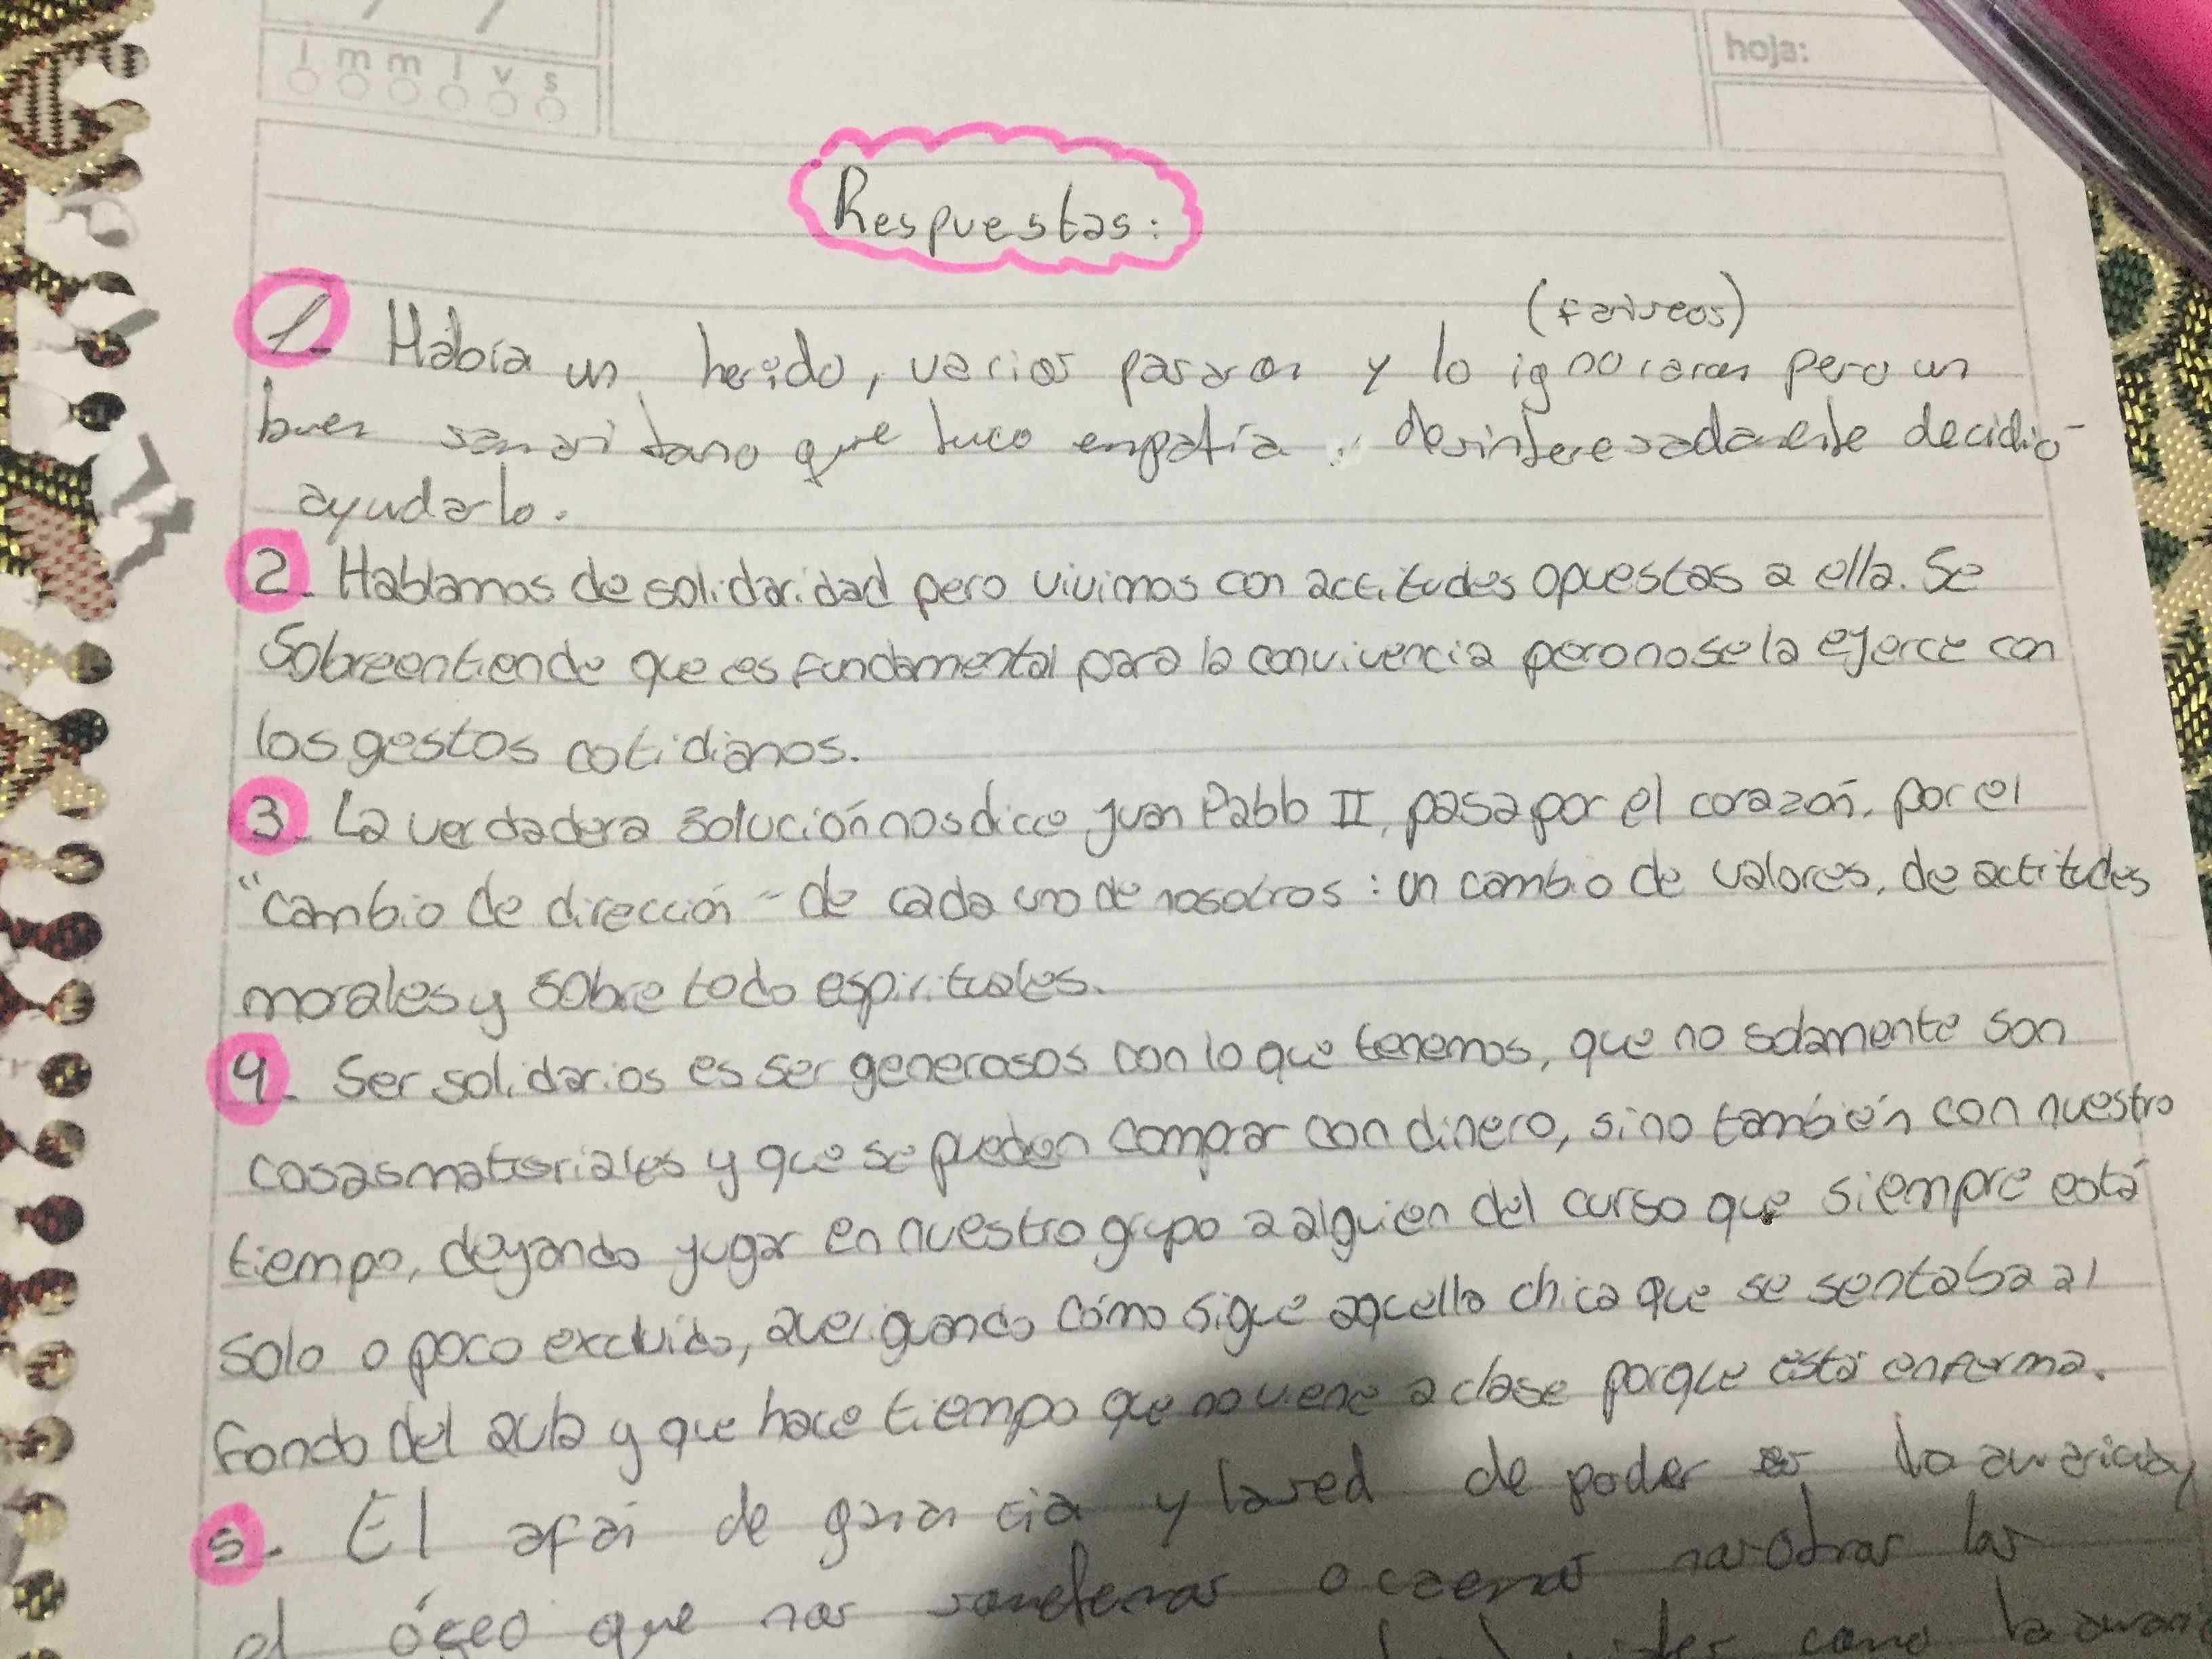 l m m j v s
hoja:
Respuestas:
(fariseos)
1- Había un herido, varios pasaron y lo ignoraron pero un
buen samaritano que tuvo empatía y desinteresadamente decidió
ayudarlo.
2- Hablamos de solidaridad pero vivimos con actitudes opuestas a ella. Se
Sobreentiende que es fundamental para la convivencia pero no se la ejerce con
los gestos cotidianos.
3- La verdadera solución nos dice Juan Pablo II, pasa por el corazón, por el
"cambio de dirección" de cada uno de nosotros: un cambio de valores, de actitudes
morales y sobre todo espirituales.
4- Ser solidarios es ser generosos con lo que tenemos, que no solamente son
cosas materiales y que se pueden comprar con dinero, sino también con nuestro
tiempo, dejando jugar en nuestro grupo a alguien del curso que siempre está
solo o poco excluido, averiguando cómo sigue aquella chica que se sentaba al
fondo del aula y que hace tiempo que no viene a clase porque está enferma.
5- El afán de ganancia y la sed de poder es la avaricia y
el que nos nosotros las
como la